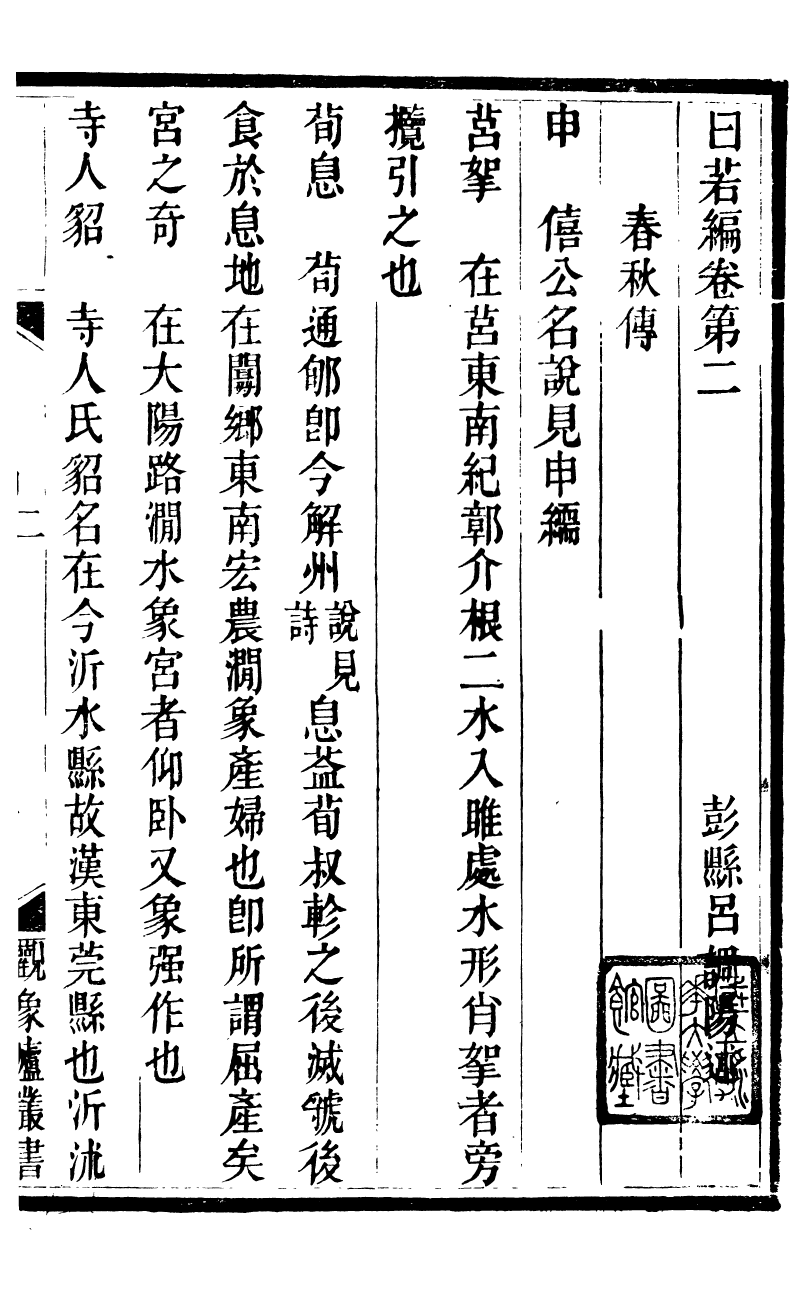 曰若編卷第二
彭縣呂調陽述
春秋傳
申　僖公名說見申繻
莒挐　在莒東南紀鄣介根二水入雎處水形肖挐者旁
攬引之也
荀息　荀通郇卽今解州說見詩息葢荀叔軫之後滅虢後
食於息地在闅鄉東南宏農澗象產婦也卽所謂屈產矣
宮之奇　在大陽路澗水象宮者仰卧又象强作也
寺人貂　寺人氏貂名在今沂水縣故漢東莞縣也沂沭
二
觀象廬叢書
圖書館藏